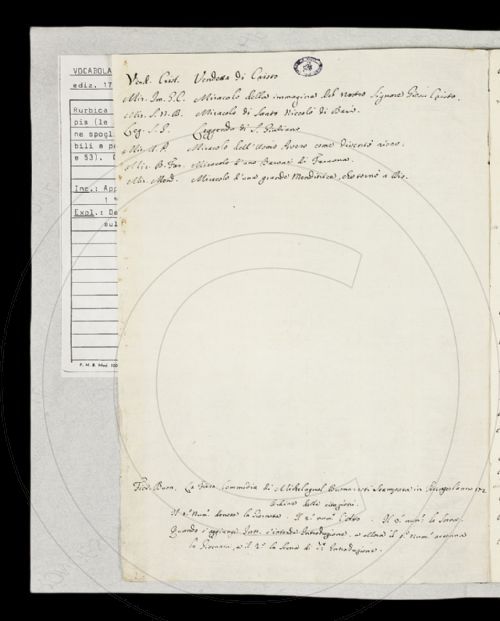 VOCABOLA
ediz. 17
Rubrica
pia (le
ne spogli
bili a p
e 53).
Inc.: App
Expl.: De
sul
Vend. Crist. Vendetta di Cristo
Mir. Im. G.C. Miracolo della immagine del nostro Signore Giesù Cristo.
Mir. S. N. B. Miracolo di Santo Niccolò di Bari.
Leg. S. G. Leggenda di S. Giuliano
Miracolo dell'Uomo Povero come diventò ricco.
Mir. B. Far. Miracolo d'uno Barone di
Mir. Mend. Miracolo d'una grande Meretrice, che tornò a Dio.
Fier. Buon. La Fiera commedia di Michelagnol Buonarroti Stampata in
Ordine delle citazioni.
Il 1.º num. denota la Giornata. Il 2.º num. l'Atto. Il 3.º num. la Scena.
Quando s'aggiunge Intr. s'intende Introduzione, e allora il 1.º num. accenna
la Giornata, e il 2.º la Scena di Introduzione.